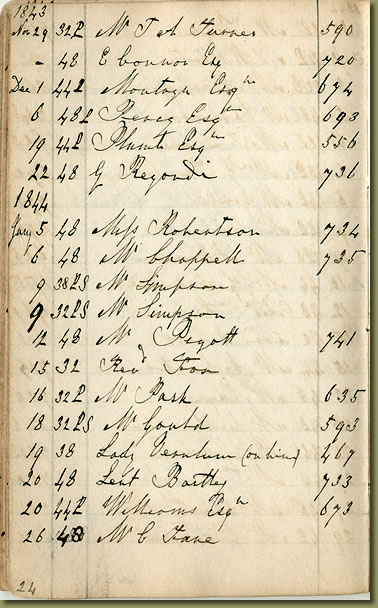 1843
Nov 29 32P Mr T A Turner 590
- 48 E Connor Esq 720
Dec 1 44P Montagu Esqre 674
6 48P Esqre 693
19 44P Plumb Esqre 556
22 48 G Regondi 736
1844
Jany 5 48 Miss Robertson 734
6 48 Mr Chappell 735
9 38PS Mr Simpson
9 32PS Mr Simpson
12 48 Mr Pigott 741
15 32 Revd Fox
16 32P Mr Park 635
18 32PS Mr Gould 593
19 38 Lady Verulum (on hire) 467
20 48 Leut Bartley 733
20 44P Williams Esqre 673
26 48 Mr C Fane
24